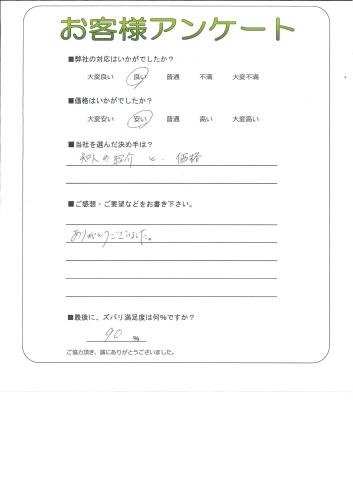 お客様アンケート
■弊社の対応はいかがでしたか？
大変良い 良い 普通 不満 大変不満
■価格はいかがでしたか？
大変安い 安い 普通 高い 大変高い
■当社を選んだ決め手は？
知人の紹介 と、価格
■ご感想・ご要望などをお書き下さい。
ありがとうございました。
■最後に、ズバリ満足度は何％ですか？
90 ％
ご協力頂き、誠にありがとうございました。